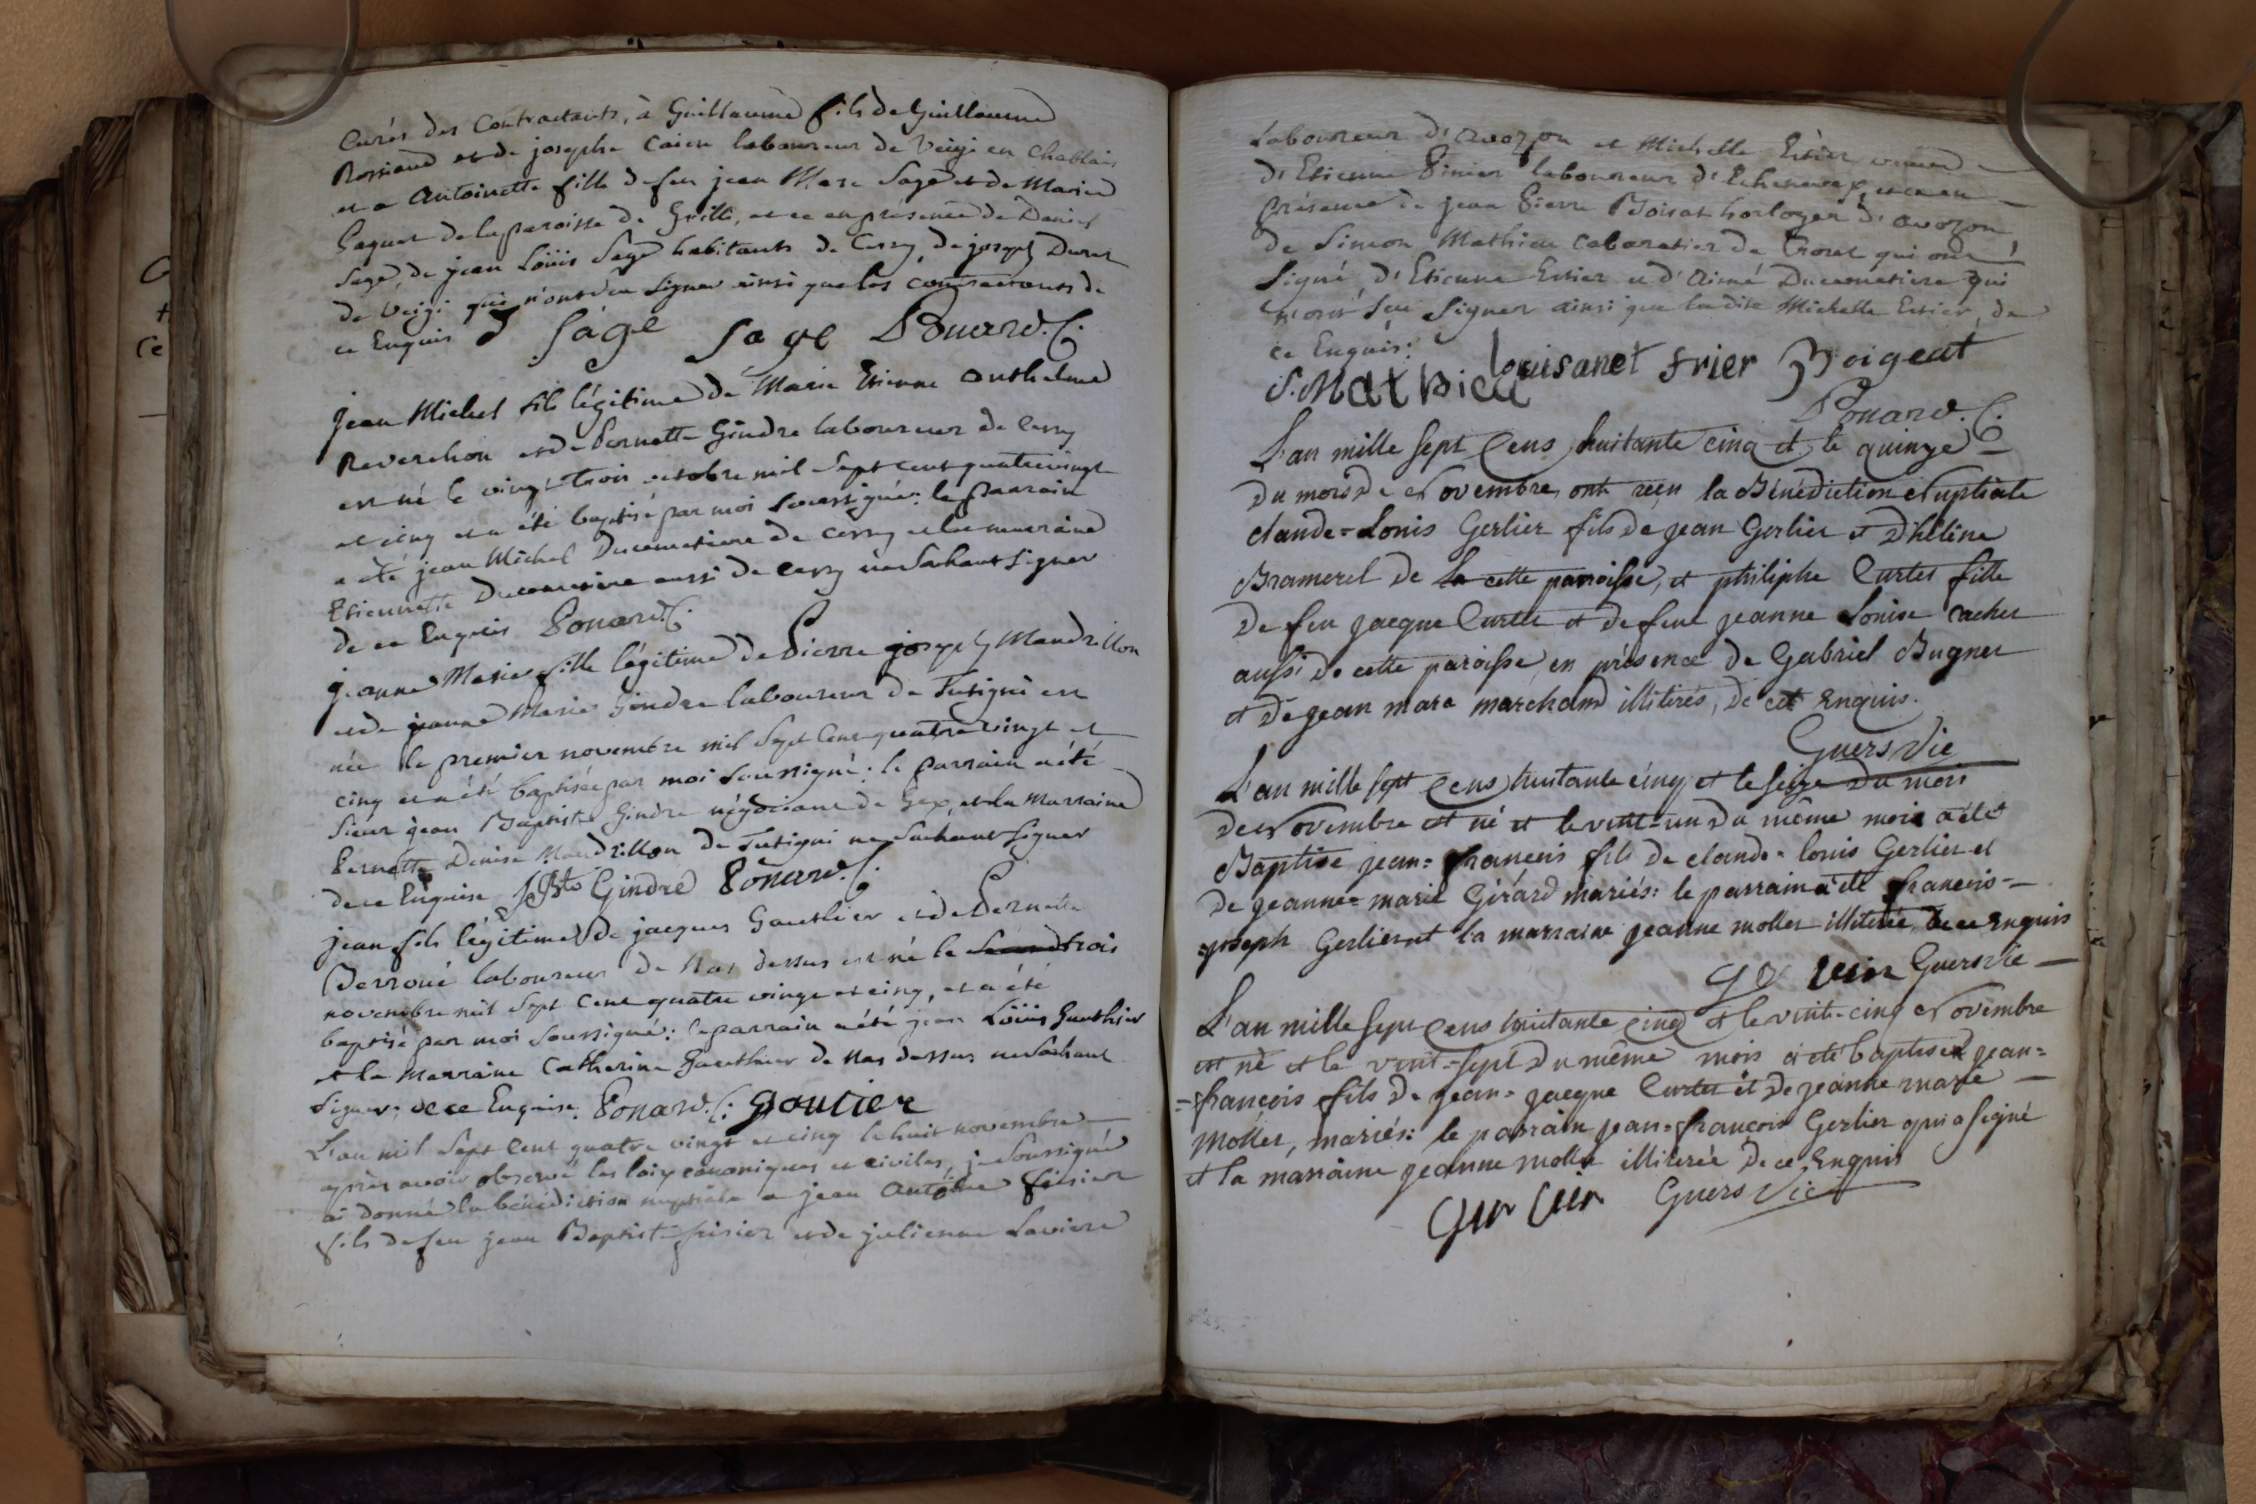 Curés des Contractants, à Guillaume fils de Guillaume
Rossiaud et de josephe laboureur de Veigi en Chablais
et a Antoinette fille de feu jean Marc Sage et de Marie
Paquet de la paroisse de Grilli, et ce en presence de Daniel
Sage, de jean Loüis Sage habitants de Cessy, de joseph Duret
de Veigi qui n'ont su signer ainsi que les contractants de
ce Enquis Sage Sage Ponard. C.
jean Michel fils légitime de Marie Etienne Anthelme
Reverchon et de Pernette Gindre laboureur de Cessy
est né le vingt trois octobre mil sept cent quatre vingt
et cinq et a été baptisé par moi soussigné: le parrain
a été jean Michel Ducimetiere de Cessy et la marraine
Etiennette Ducimetiere aussi de Cessy ne sachant signer
de ce Enquis Ponard. C.
jeanne Marie fille légitime de Pierre joseph Mandrillon
et de jeanne Marie Gindre laboureur de Tutigni est
née le premier novembre mil sept cent quatre vingt et
cinq et a été baptisée par moi soussigné: le parrain a été
sieur jean Baptiste Gindre négociant de Gex, et la marraine
Pernette Denise Mandrillon de Tutigni ne sachant signer
de ce Enquise Gindre Ponard. C.
jean fils légitime de jacques Gauthier et de Pernette
laboureur de Nas dessus est né le second trois
novembre mil sept cent quatre vingt et cinq, et a été
baptisé par moi soussigné: le parrain a été jean Loüis Gauthier
et la marraine Catherine Gauthier de Nas dessus ne sachant
signer, de ce Enquise. Ponard. C. goutier
L'an mil sept cent quatre vingt et cinq le huit novembre
après avoir observé les loix canoniques et civiles, je soussigné
ai donné la bénédiction nuptiale a jean Antoine frisier
fils de feu jean Baptiste frisier et de julienne Laviere
Laboureur d'avozon et Michelle Estier
d'Etienne laboureur d'Echenevex, et ce en
présence de jean Pierre Boisat horloger d'avozon
de Simon Mathieu Cabaretier de qui ont
signé, d'Etienne Estier et d'Aimé Ducimetiere qui
n'ont su signer ainsi que la dite Michelle Estier, de
ce Enquis:
S. Mathieu louisanet frier Boigeat
Ponard. C.
L'an mille sept Cens huitante cinq et le quinze
du mois de Novembre, ont reçu la Bénédiction Nuptiale
claude=Louis Gerlier fils de jean Gerlier et d'hélène
Bramerel de la cette paroisse, et philiphe Curtet fille
de feu jacque Curtet et de feue jeanne Louise cachet
aussi de cette paroisse, en présence de Gabriel Bugnet
et de jean marc marchand illitérés, de ce Enquis.
Guers Vic
L'an mille sept Cens huitante cinq et le seize du mois
de Novembre est né et le vint-un du même mois a été
Baptise jean=françois fils de claude=louis Gerlier et
de jeanne=marie Girard mariés: le parrain a été françois=
joseph Gerlier et la marraine jeanne mollet illiterée, de ce Enquis
Guers Vic
L'an mille sept Cens huitante cinq et le vint-cinq Novembre
est né et le vint=sept du même mois a été baptisé jean=
=françois fils de jean=jacque Curtet et de jeanne marie
mollet, mariés: le parrain jean=françois Gerlier qui a signé
et la marraine jeanne mollet illiterée de ce Enquis
Guers Vic